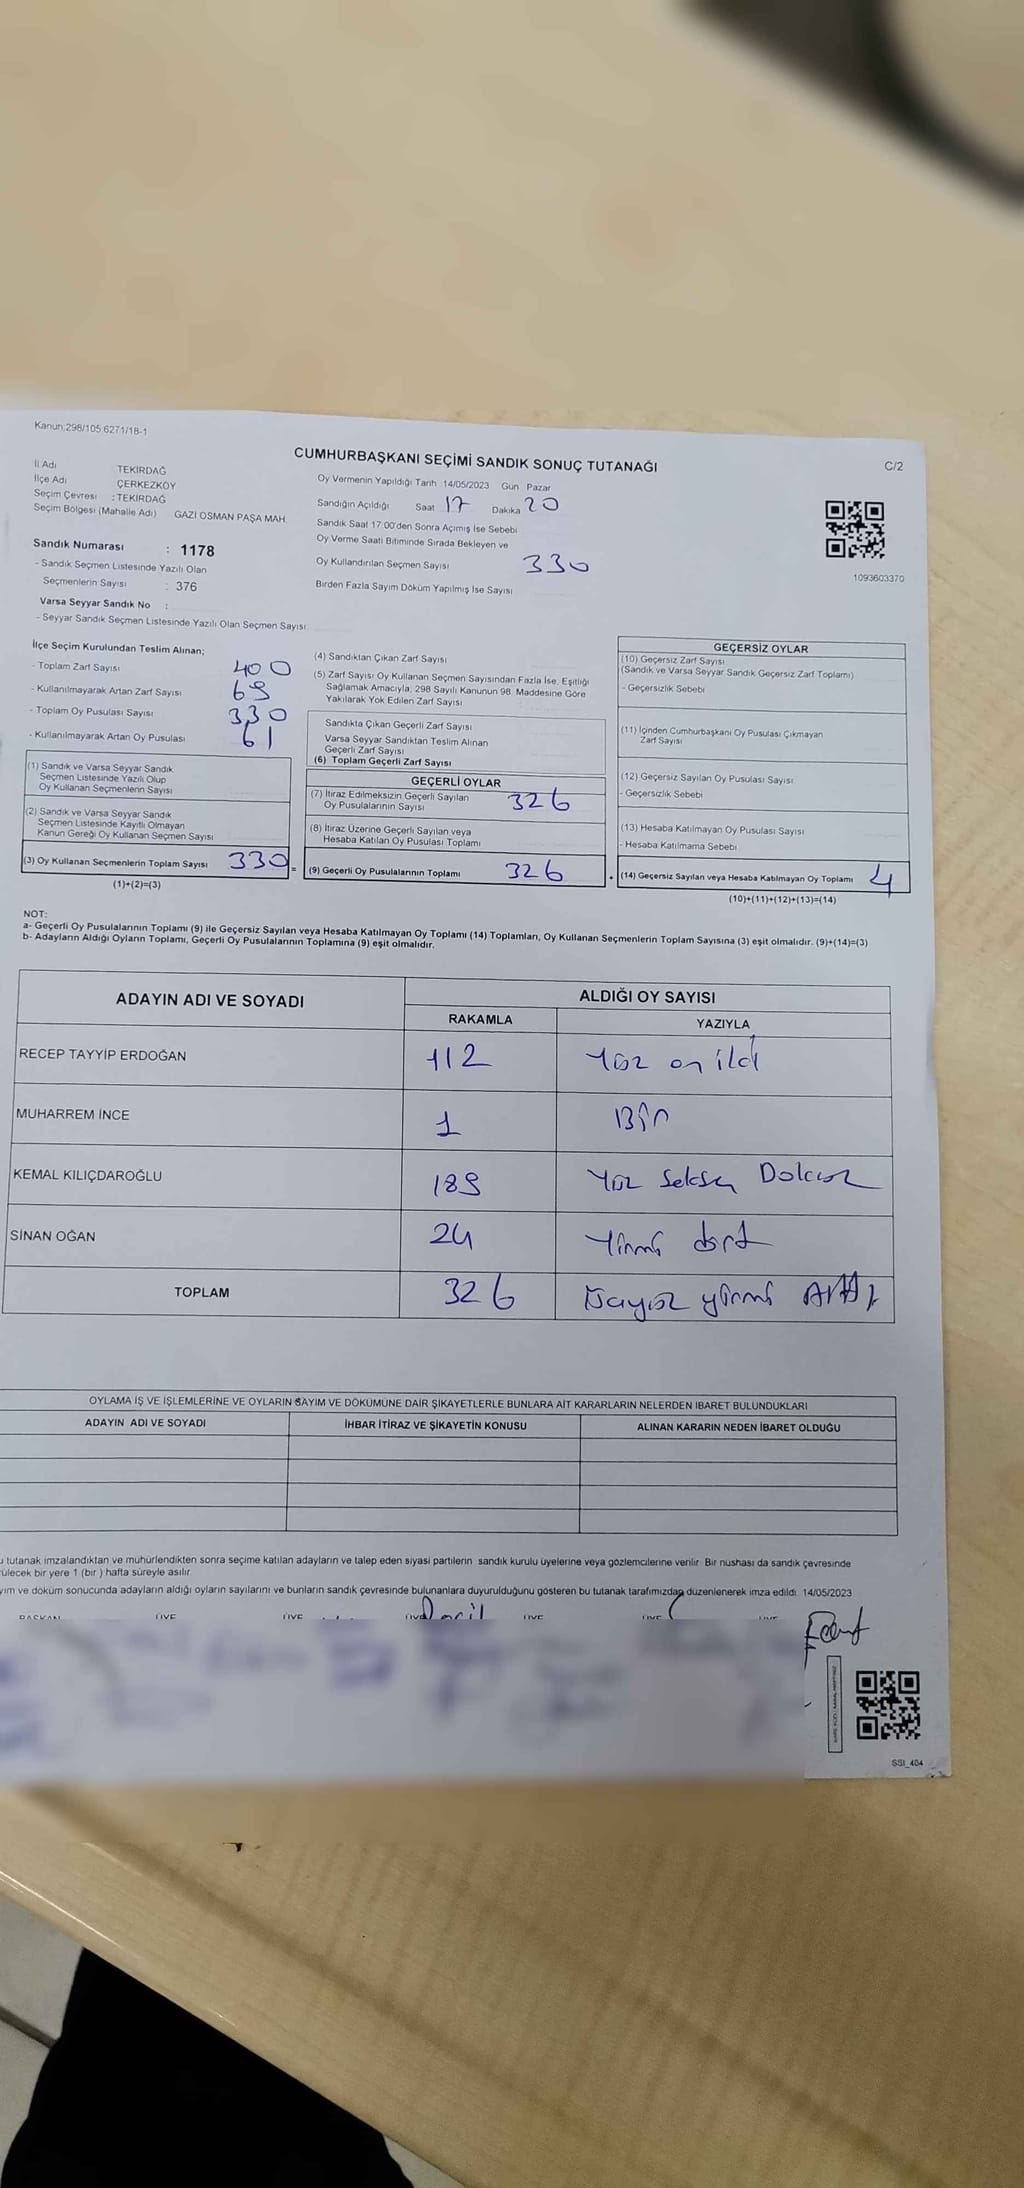 Kanun:298/105.6271/18-1
CUMHURBAŞKANI SEÇİMİ SANDIK SONUÇ TUTANAĞI
C/2
İl Adı TEKİRDAĞ
İlçe Adı ÇERKEZKÖY
Seçim Çevresi : TEKİRDAĞ
Seçim Bölgesi (Mahalle Adı) GAZİ OSMAN PAŞA MAH.
Sandık Numarası : 1178
- Sandık Seçmen Listesinde Yazılı Olan
Seçmenlerin Sayısı : 376
Varsa Seyyar Sandık No :
- Seyyar Sandık Seçmen Listesinde Yazılı Olan Seçmen Sayısı:
Oy Vermenin Yapıldığı Tarih 14/05/2023 Gün Pazar
Sandığın Açıldığı Saat 17 Dakika 20
Sandık Saat 17.00'den Sonra Açımış İse Sebebi
Oy Verme Saati Bitiminde Sırada Bekleyen ve
Oy Kullandırılan Seçmen Sayısı 330
Birden Fazla Sayım Döküm Yapılmış İse Sayısı
1093603370
İlçe Seçim Kurulundan Teslim Alınan;
- Toplam Zarf Sayısı 400
- Kullanılmayarak Artan Zarf Sayısı 69
- Toplam Oy Pusulası Sayısı 330
- Kullanılmayarak Artan Oy Pusulası 61
(1) Sandık ve Varsa Seyyar Sandık
Seçmen Listesinde Yazılı Olup
Oy Kullanan Seçmenlerin Sayısı
(2) Sandık ve Varsa Seyyar Sandık
Seçmen Listesinde Kayıtlı Olmayan
Kanun Gereği Oy Kullanan Seçmen Sayısı
(3) Oy Kullanan Seçmenlerin Toplam Sayısı 330 =
(1)+(2)=(3)
(4) Sandıktan Çıkan Zarf Sayısı
(5) Zarf Sayısı Oy Kullanan Seçmen Sayısından Fazla İse, Eşitliği
Sağlamak Amacıyla, 298 Sayılı Kanunun 98. Maddesine Göre
Yakılarak Yok Edilen Zarf Sayısı
Sandıkta Çıkan Geçerli Zarf Sayısı
Varsa Seyyar Sandıktan Teslim Alınan
Geçerli Zarf Sayısı
(6) Toplam Geçerli Zarf Sayısı
GEÇERLİ OYLAR
(7) İtiraz Edilmeksizin Geçerli Sayılan
Oy Pusulalarının Sayısı 326
(8) İtiraz Üzerine Geçerli Sayılan veya
Hesaba Katılan Oy Pusulası Toplamı
(9) Geçerli Oy Pusulalarının Toplamı 326 +
GEÇERSİZ OYLAR
(10) Geçersiz Zarf Sayısı
(Sandık ve Varsa Seyyar Sandık Geçersiz Zarf Toplamı)
- Geçersizlik Sebebi
(11) İçinden Cumhurbaşkanı Oy Pusulası Çıkmayan
Zarf Sayısı
(12) Geçersiz Sayılan Oy Pusulası Sayısı
- Geçersizlik Sebebi
(13) Hesaba Katılmayan Oy Pusulası Sayısı
- Hesaba Katılmama Sebebi
(14) Geçersiz Sayılan veya Hesaba Katılmayan Oy Toplamı 4
(10)+(11)+(12)+(13)=(14)
NOT:
a- Geçerli Oy Pusulalarının Toplamı (9) ile Geçersiz Sayılan veya Hesaba Katılmayan Oy Toplamı (14) Toplamları, Oy Kullanan Seçmenlerin Toplam Sayısına (3) eşit olmalıdır. (9)+(14)=(3)
b- Adayların Aldığı Oyların Toplamı, Geçerli Oy Pusulalarının Toplamına (9) eşit olmalıdır.
ADAYIN ADI VE SOYADI
ALDIĞI OY SAYISI
RAKAMLA YAZIYLA
RECEP TAYYİP ERDOĞAN 112 Yüz on iki
MUHARREM İNCE 1 Bir
KEMAL KILIÇDAROĞLU 189 Yüz seksen Dokuz
SİNAN OĞAN 24 Yirmi dört
TOPLAM 326 üçyüz yirmi Altı
OYLAMA İŞ VE İŞLEMLERİNE VE OYLARIN SAYIM VE DÖKÜMÜNE DAİR ŞİKAYETLERLE BUNLARA AİT KARARLARIN NELERDEN İBARET BULUNDUKLARI
ADAYIN ADI VE SOYADI
İHBAR İTİRAZ VE ŞİKAYETİN KONUSU
ALINAN KARARIN NEDEN İBARET OLDUĞU
tutanak imzalandıktan ve mühürlendikten sonra seçime katılan adayların ve talep eden siyasi partilerin sandık kurulu üyelerine veya gözlemcilerine verilir. Bir nushası da sandık çevresinde
ülecek bir yere 1 (bir ) hafta süreyle asılır.
yım ve döküm sonucunda adayların aldığı oyların sayılarını ve bunların sandık çevresinde bulunanlara duyurulduğunu gösteren bu tutanak tarafımızdan düzenlenerek imza edildi. 14/05/2023
BAŞKAN ÜYE ÜYE ÜYE ÜYE ÜYE ÜYE
SSI_404